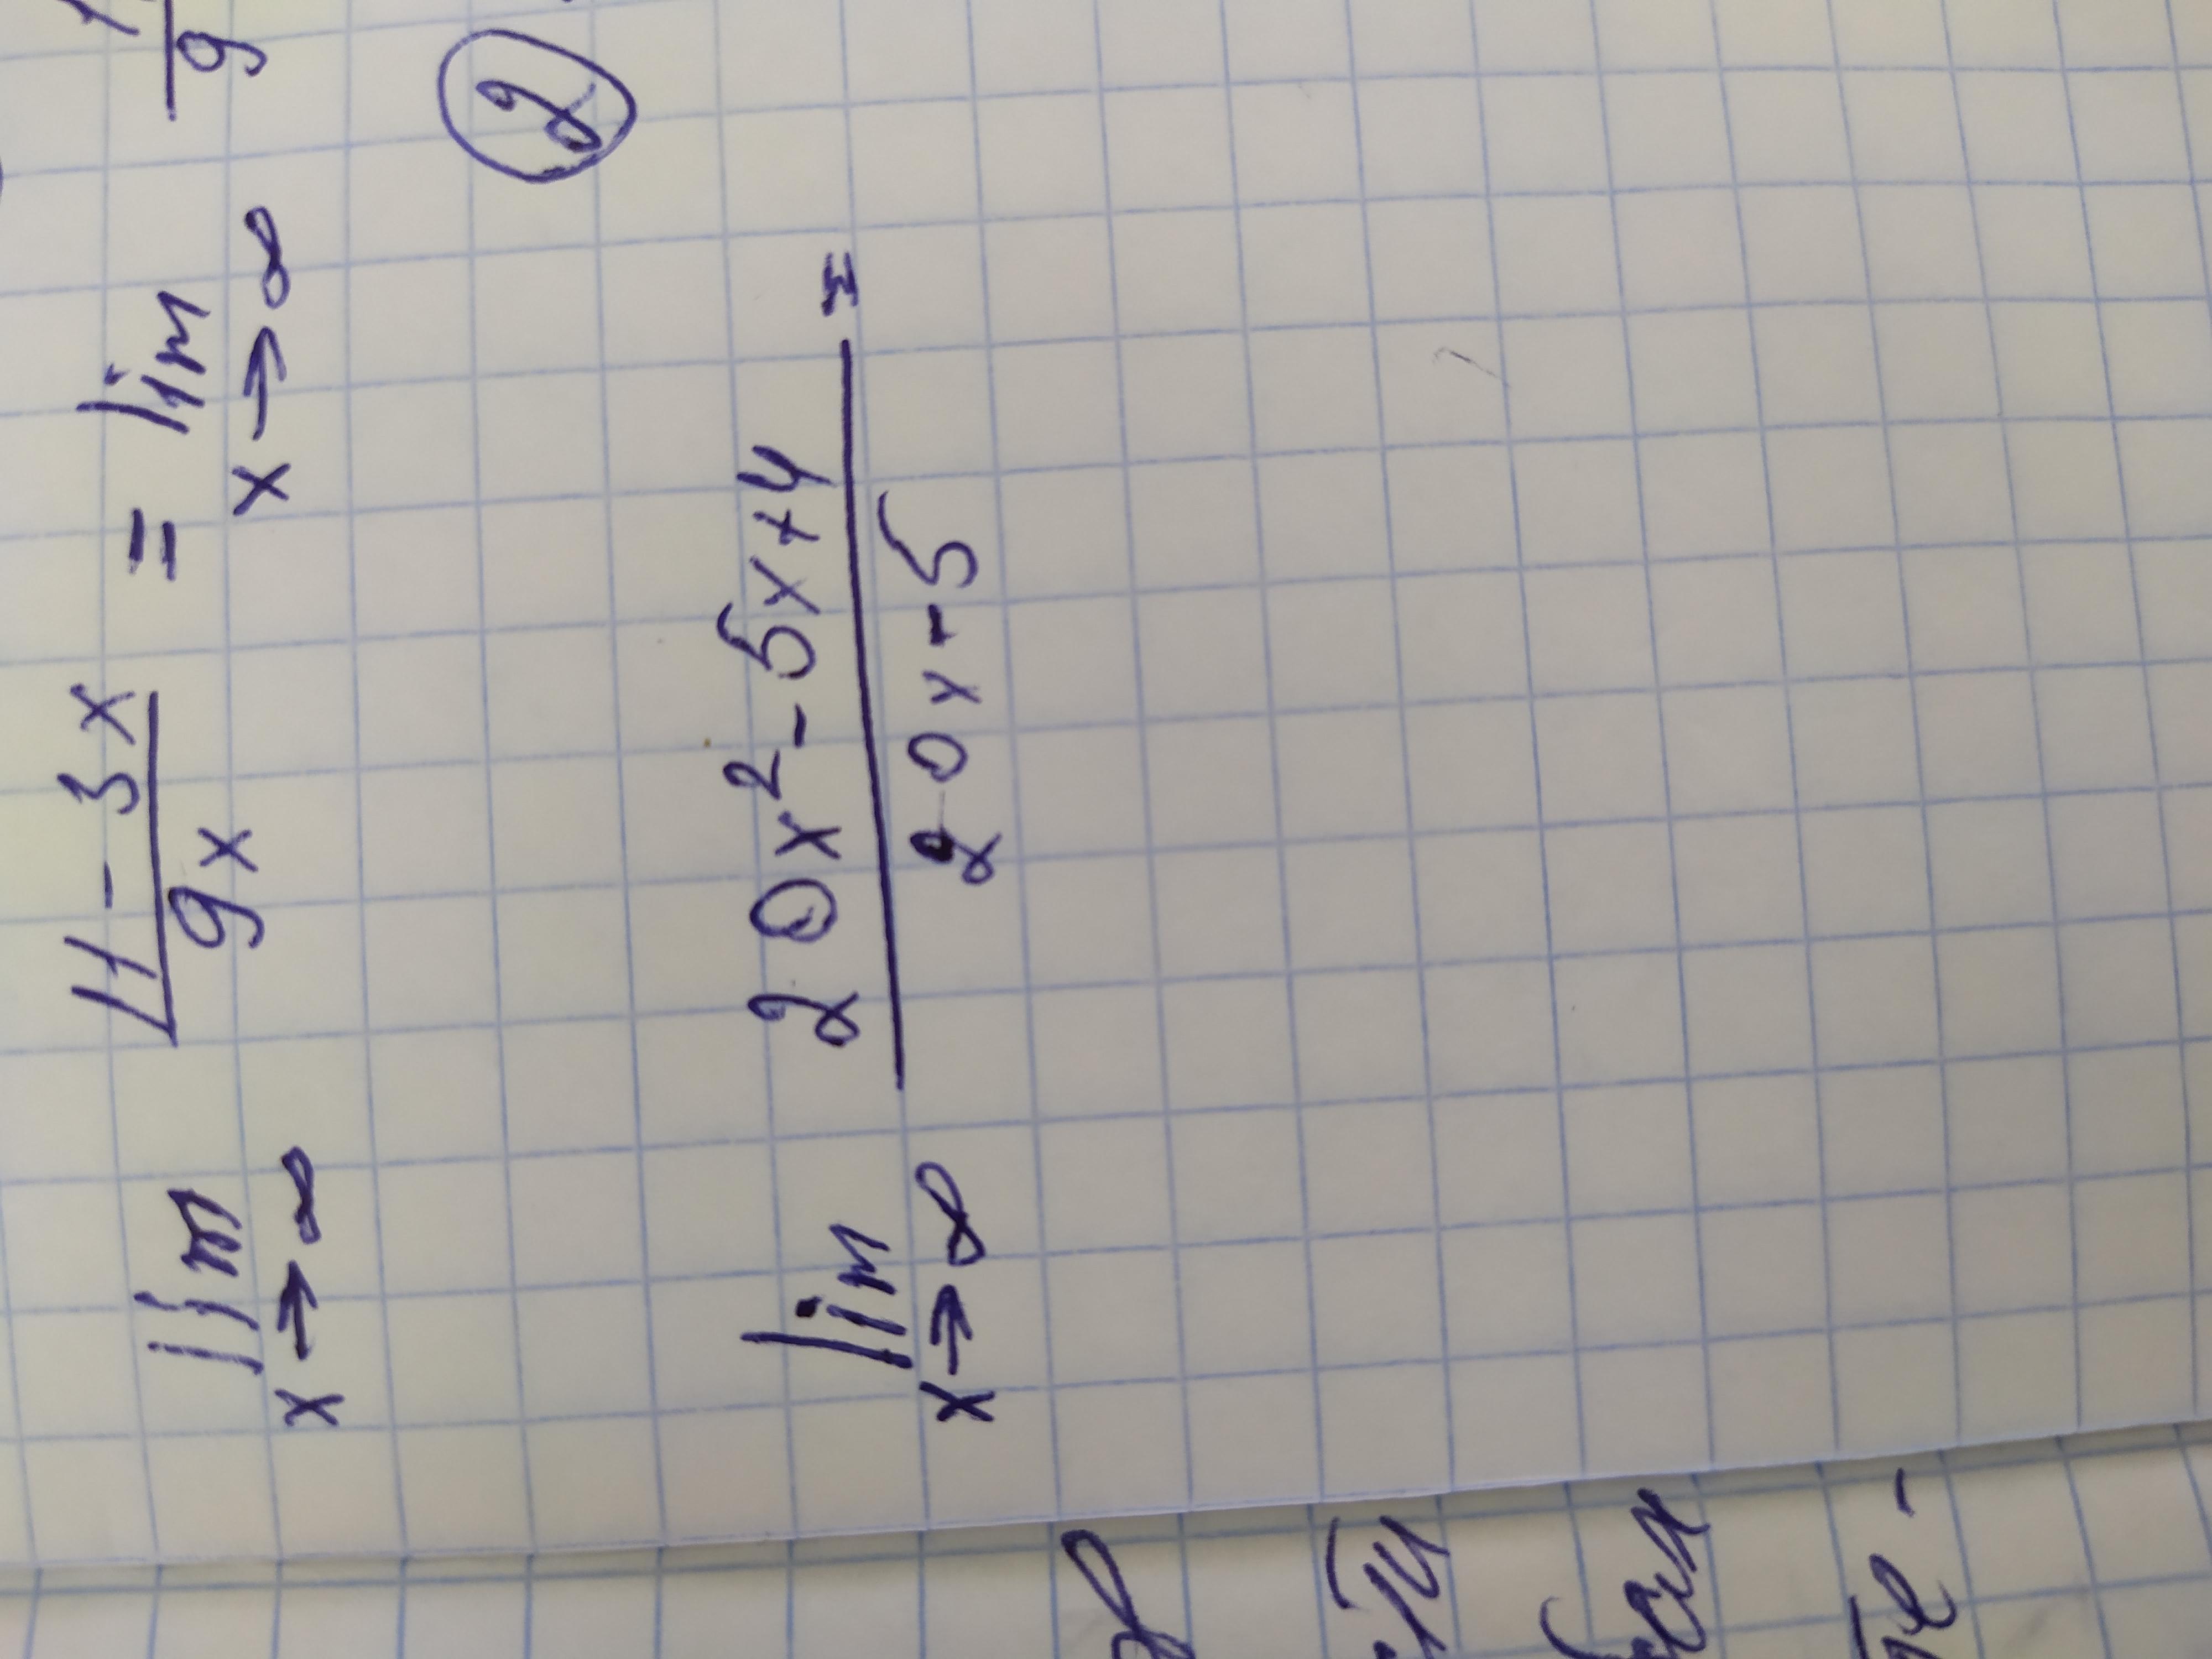 lim x→∞ (11 - 3x)/(9x) = lim x→∞
9
2
lim x→∞ (20x² - 5x + 4)/(20x - 5) =